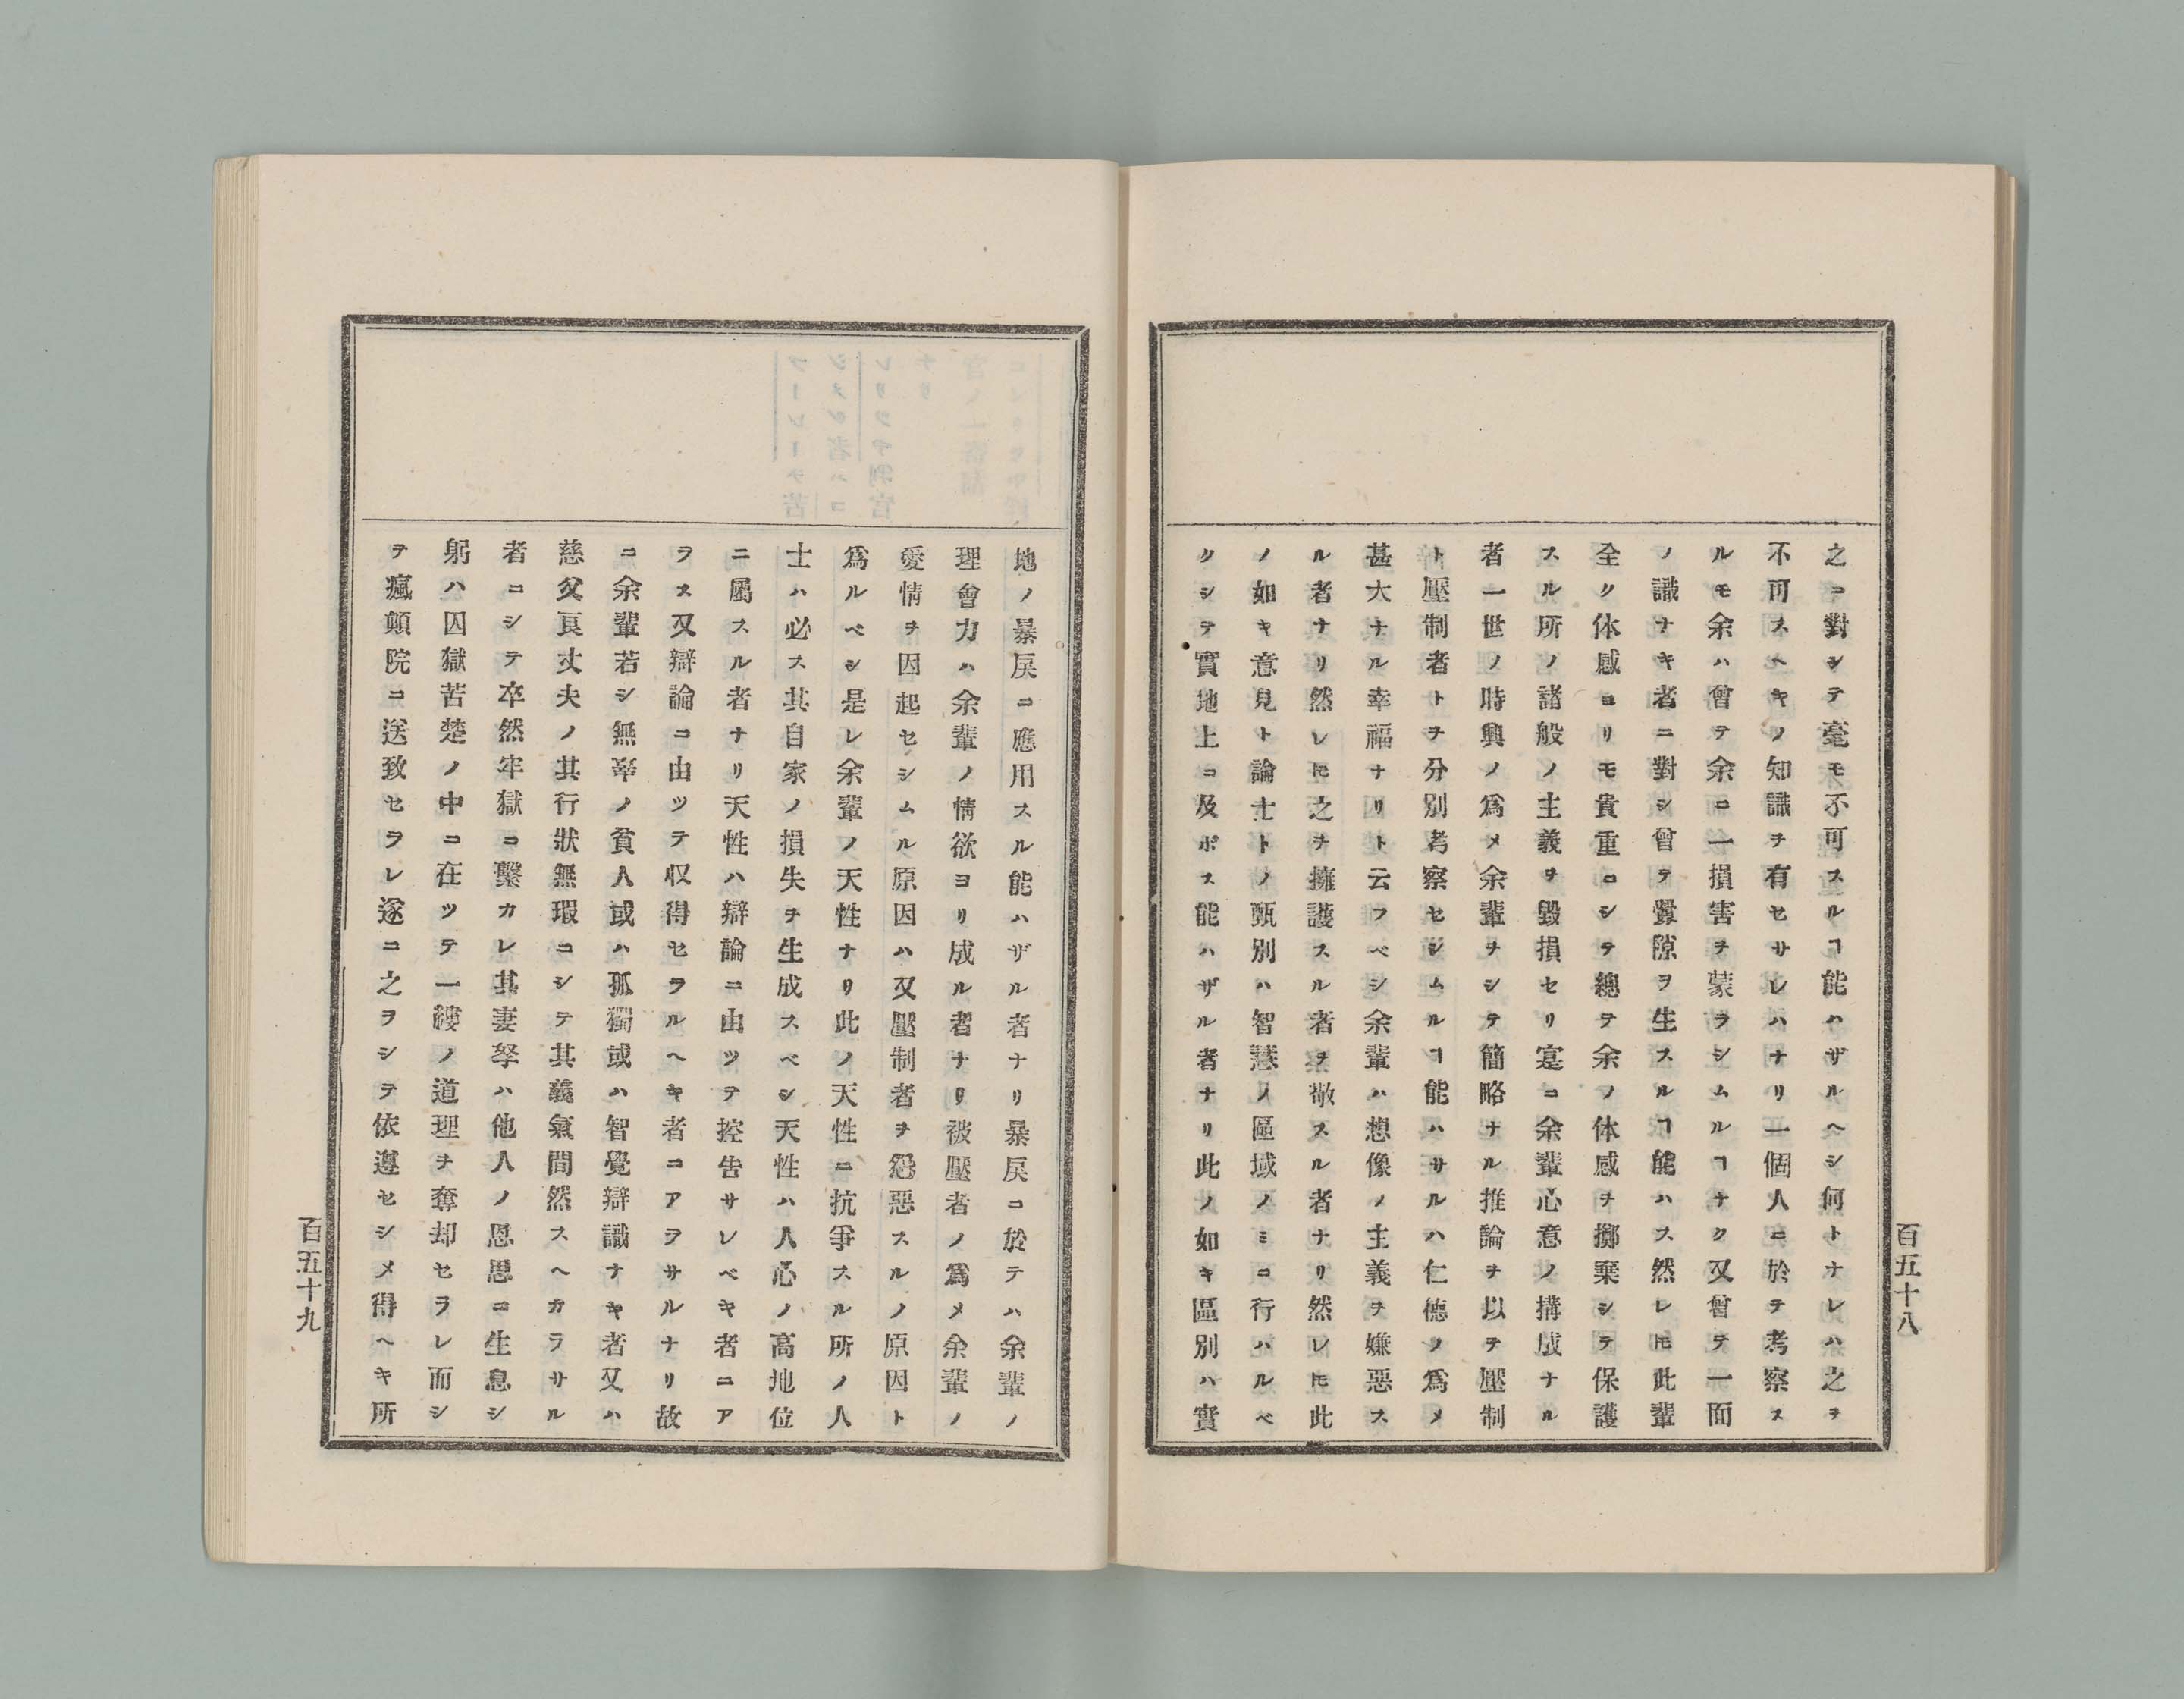 之ニ對シテ毫モ不可スルヿ能ハザルヘシ何トナレハ之ヲ
不可スヘキノ知識ヲ有セサレハナリ一個人ニ於テ考察ス
ルモ余ハ曾テ余ニ一損害ヲ蒙ラシムルヿナク又曾テ一面
ノ識ナキ者ニ對シ曾テ釁隙ヲ生スルヿ能ハス然レ𪜈此輩
全ク体感ヨリモ貴重ニシテ總テ余ノ体感ヲ擲棄シテ保護
スル所ノ諸般ノ主義ヲ毀損セリ寔ニ余輩心意ノ搆成ナル
者一世ノ時興ノ爲メ余輩ヲシテ簡略ナル推論ヲ以テ壓制
ト壓制者トヲ分別考察セシムルヿ能ハサルハ仁德ノ爲メ
甚大ナル幸福ナリト云フベシ余輩ハ想像ノ主義ヲ嫌惡ス
ル者ナリ然レ𪜈之ヲ擁護スル者ヲ敬スル者ナリ然レ𪜈此
ノ如キ意見ト論士トノ甄別ハ智慧ノ區域ノミニ行ハルベ
クシテ實地上ニ及ボス能ハザル者ナリ此ノ如キ區別ハ實
百五十八
地ノ暴戻ニ應用スル能ハザル者ナリ暴戻ニ於テハ余輩ノ
理會力ハ余輩ノ情欲ヨリ成ル者ナリ被壓者ノ爲メ余輩ノ
愛情ヲ因起セシムル原因ハ又壓制者ヲ怨惡スルノ原因ト
爲ルベシ是レ余輩ノ天性ナリ此ノ天性ニ抗爭スル所ノ人
士ハ必ス其自家ノ損失ヲ生成スベシ天性ハ人心ノ高地位
ニ屬スル者ナリ天性ハ辯論ニ由ツテ控告サレベキ者ニア
ラス又辯論ニ由ツテ収得セラルヘキ者ニアラサルナリ故
ニ余輩若シ無辜ノ貧人或ハ孤獨或ハ智覺辯識ナキ者又ハ
慈父良丈夫ノ其行狀無瑕ニシテ其義氣間然スヘカラサル
者ニシテ卒然牢獄ニ繫カレ其妻孥ハ他人ノ恩思ニ生息シ
躬ハ囚獄苦楚ノ中ニ在ツテ一縷ノ道理ヲ奪却セラレ而シ
テ瘋顛院ニ送致セラレ遂ニ之ヲシテ依遵セシメ得ヘキ所
百五十九